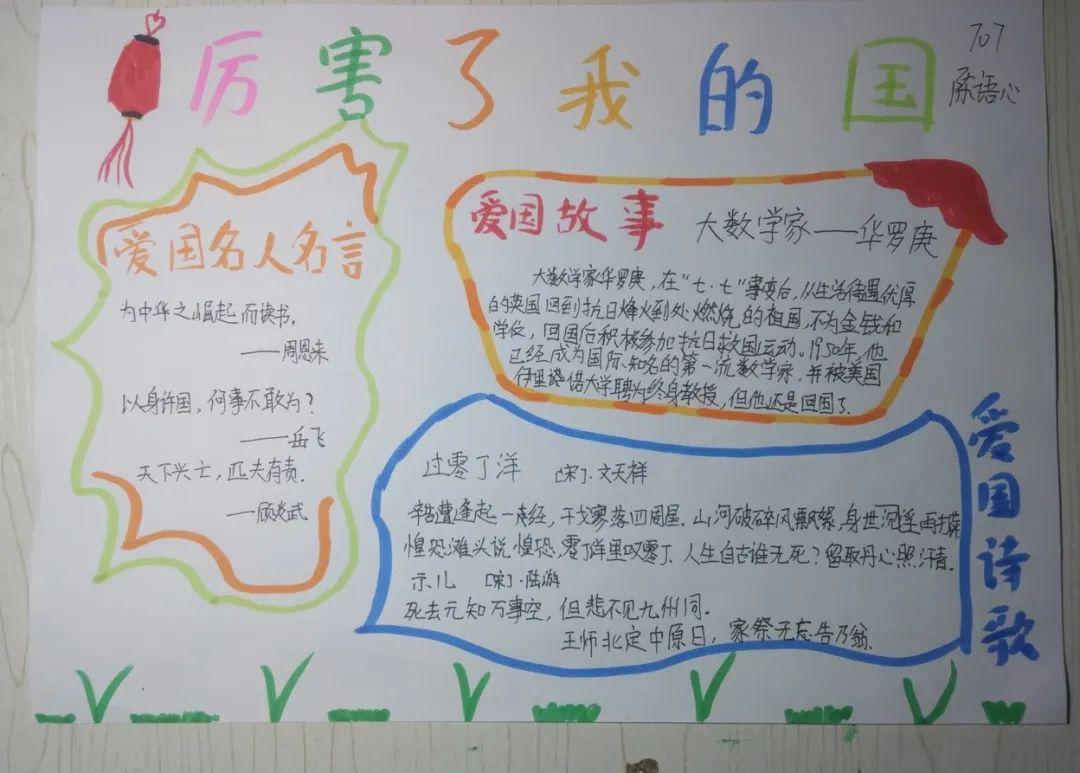 厉害了我的国
707
陈语心
爱国名人名言
为中华之崛起而读书。
——周恩来
以身许国，何事不敢为？
——岳飞
天下兴亡，匹夫有责。
——顾炎武
爱国故事 大数学家——华罗庚
大数学家华罗庚，在“七·七”事变后，从生活待遇优厚
的英国回到抗日烽火到处燃烧的祖国，不为金钱和
学位，回国后积极参加抗日救国运动。1950年，他
已经成为国际知名的第一流数学家，并被美国
伊里诺大学聘为终身教授，但他还是回国了。
爱国诗歌
过零丁洋 [宋]·文天祥
辛苦遭逢起一经，干戈寥落四周星。山河破碎风飘絮，身世沉浮雨打萍
惶恐滩头说惶恐，零丁洋里叹零丁。人生自古谁无死？留取丹心照汗青。
示儿 [宋]·陆游
死去元知万事空，但悲不见九州同。
王师北定中原日，家祭无忘告乃翁。